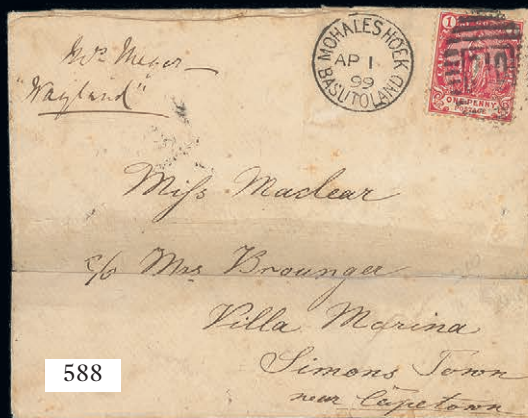 Mrs Meyer
"Wayland"
MOHALESHOEK
AP 1
99
BASUTOLAND
1
ONE PENNY
POSTAGE
Miss Maclear
c/o Mrs Brounger
Villa Marina
Simons Town
near Capetown
588